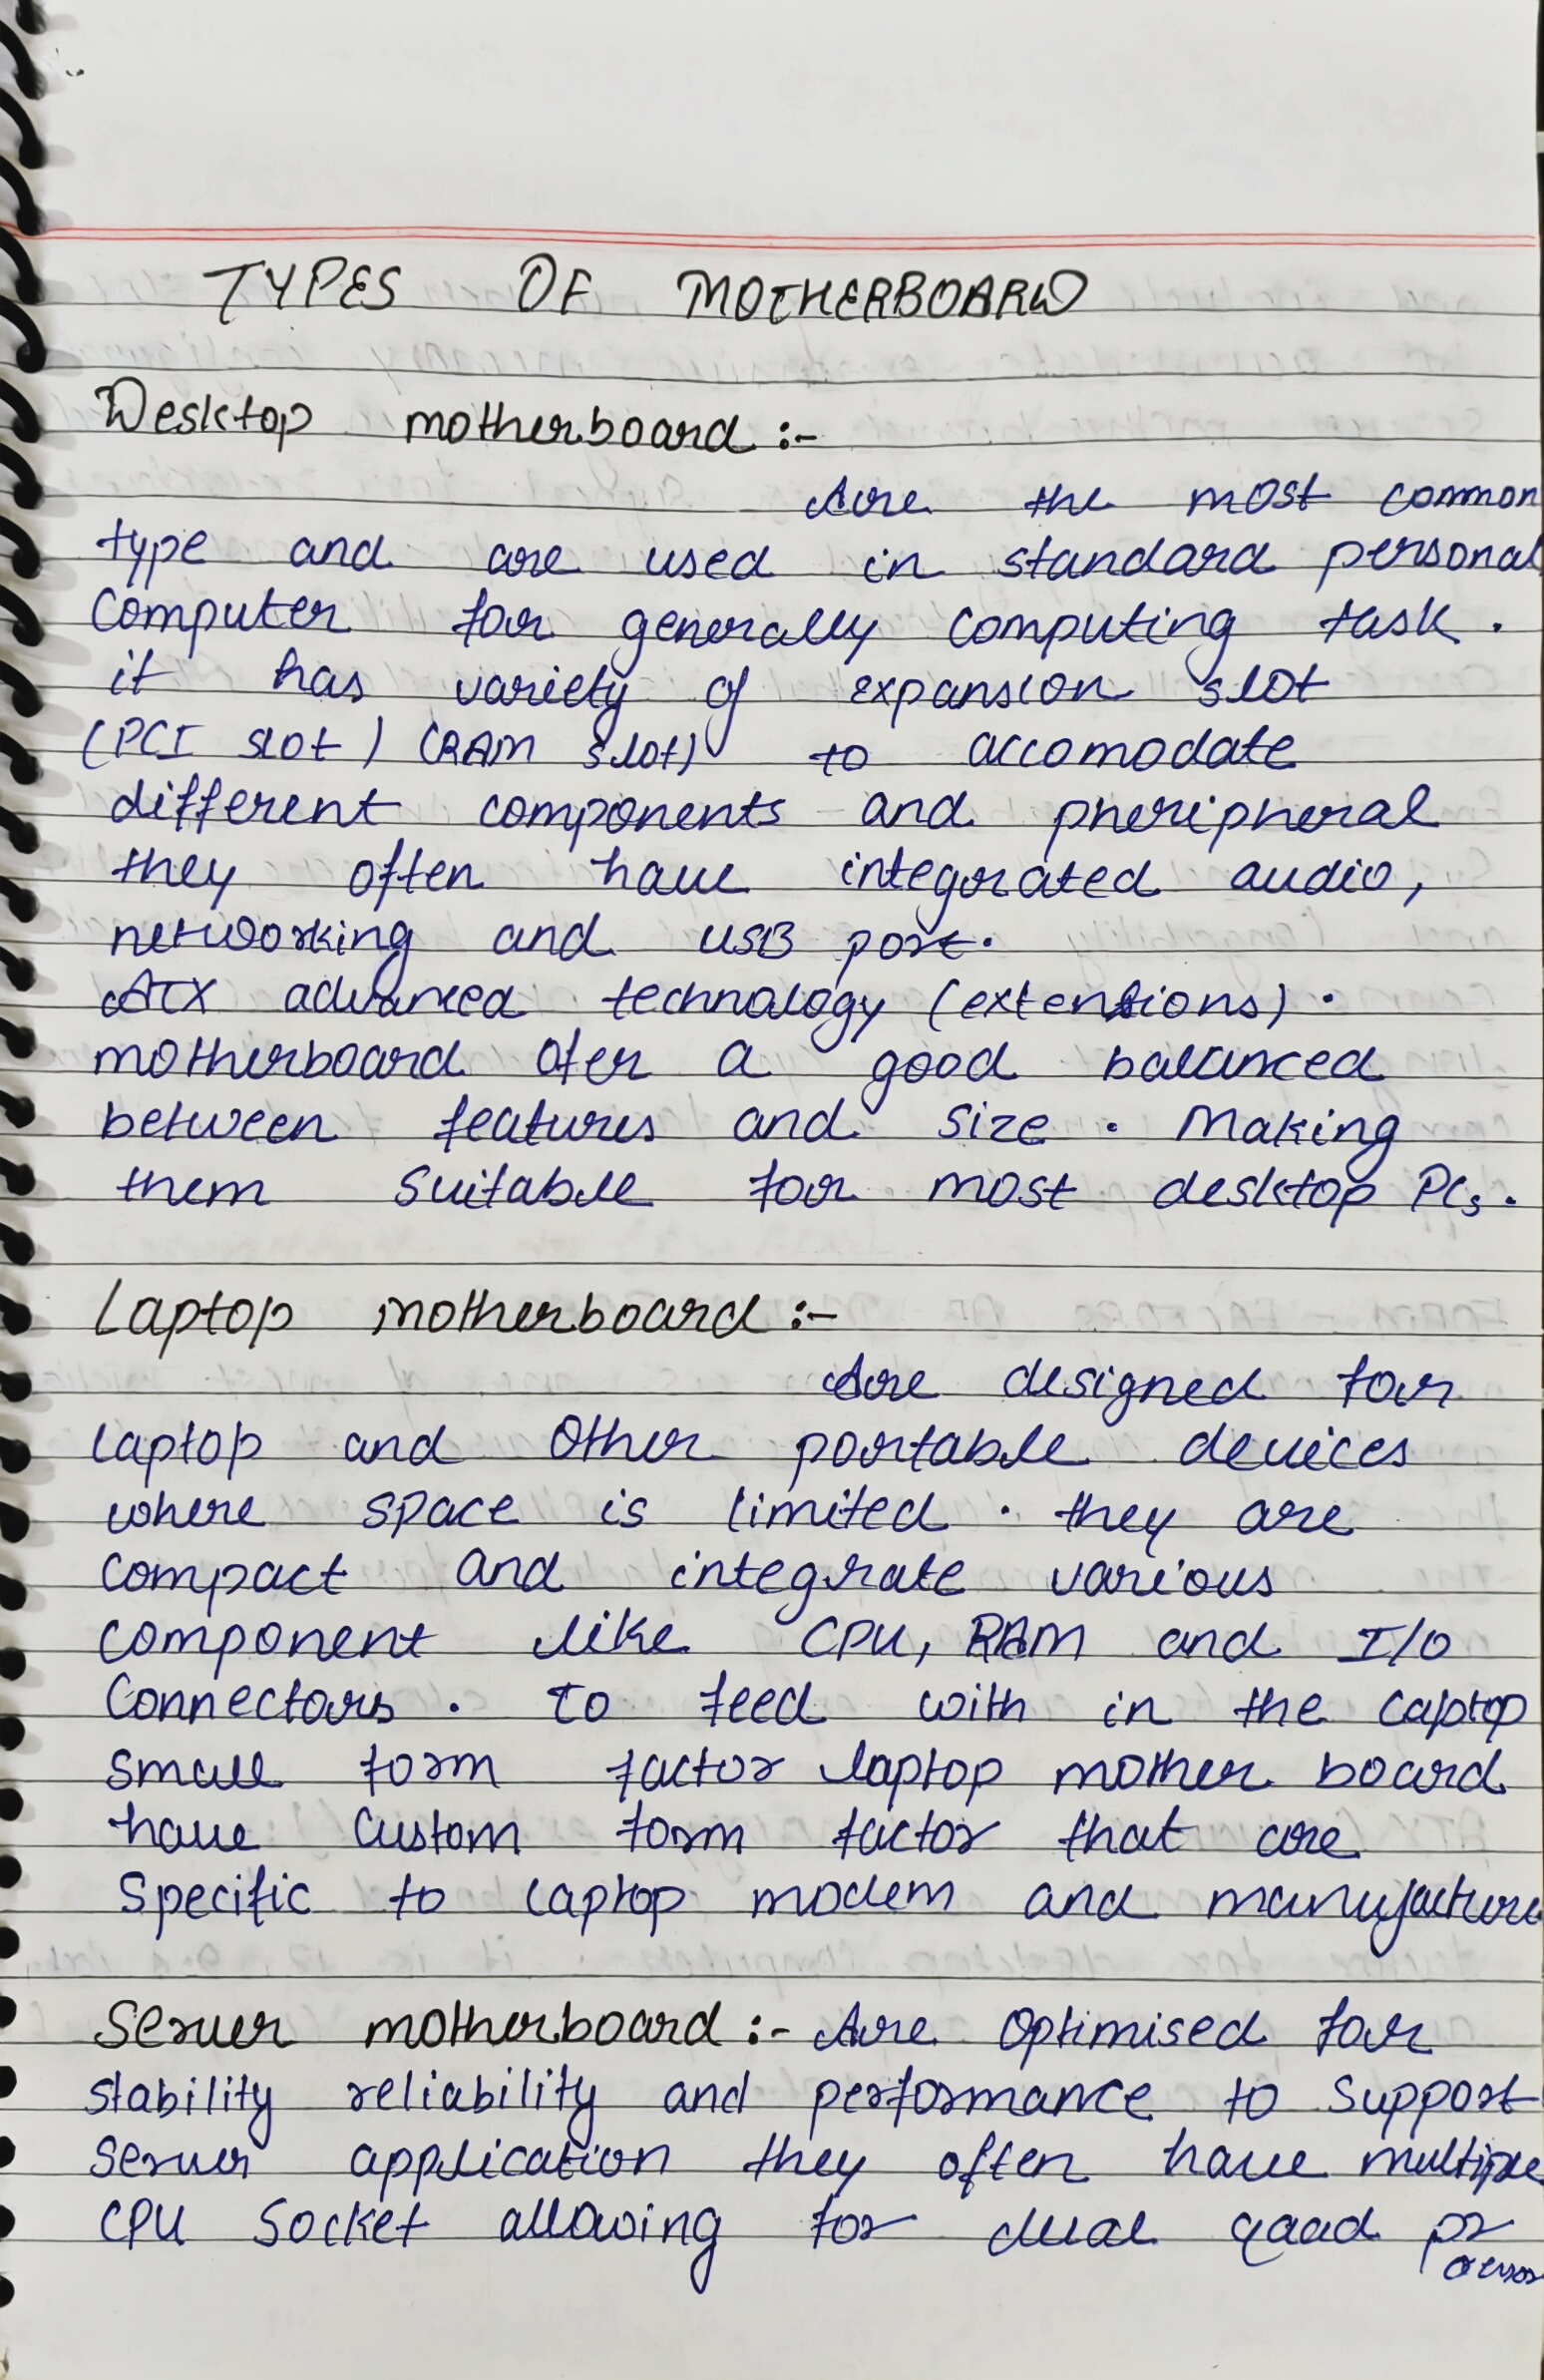 TYPES OF MOTHERBOARD
Desktop motherboard :-
Are the most common
type and are used in standard personal
Computer for generally computing task .
it has variety of expansion slot
(PCI slot) (RAM slot) to accomodate
different components and pheripheral
they often have integrated audio,
networking and USB port.
ATX advanced technology (extentions) .
motherboard ofer a good balanced
between features and size . Making
them suitable for most desktop PCs.
Laptop motherboard :-
Are designed for
laptop and other portable devices
where space is limited . they are
compact and integrate various
component like CPU, RAM and I/O
Connectors . To feed with in the laptop
small form factor laptop mother board
have custom form factor that are
Specific to laptop modem and manufacture
Server motherboard :- Are Optimised for
stability reliability and performance to support
server application they often have multiple
CPU Socket allowing for dual qaad